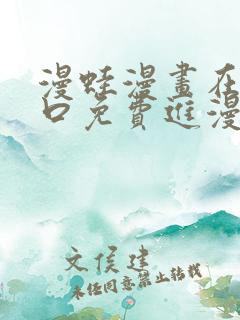 漫蛙漫畫在
口免費進漫
文侯建
未经同意禁止转载